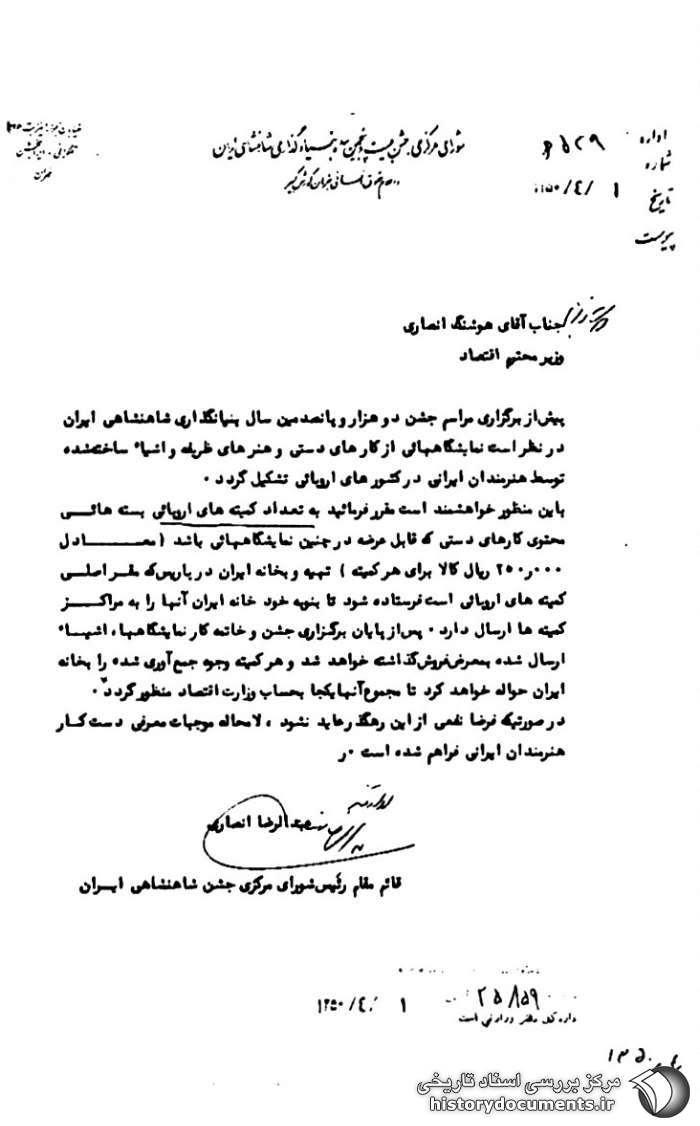 شورای مرکزی جشن بیست و پنجمین سده بنیاد گذاری شاهنشاهی ایران
اداره
شماره ۵۲۹
تاریخ ۱ /۱۳۵۰/۴
پیوست
تهران
جناب آقای هوشنگ انصاری
وزیر محترم اقتصاد
پیش از برگزاری مراسم جشن دو هزار و پانصدمین سال بنیانگذاری شاهنشاهی ایران
در نظر است نمایشگاههائی از کار های دستی و هنر های ظریفه و اشیاء ساخته شده
توسط هنرمندان ایرانی در کشور های اروپائی تشکیل گردد ۰
باین منظور خواهشمند است مقرر فرمائید به تعداد کمیته های اروپائی بسته هائی
محتوی کارهای دستی که قابل عرضه در چنین نمایشگاههائی باشد ( معادل
۲۵۰٫۰۰۰ ریال کالا برای هر کمیته ) تهیه و بخانه ایران در پاریس که مقر اصلی
کمیته های اروپائی است فرستاده شود تا بنوبه خود خانه ایران آنها را به مراکز
کمیته ها ارسال دارد ۰ پس از پایان برگزاری جشن و خاتمه کار نمایشگاهها ، اشیاء
ارسال شده بمعرض فروش گذاشته خواهد شد و هر کمیته وجوه جمع آوری شده را بخانه
ایران حواله خواهد کرد تا مجموع آنها یکجا بحساب وزارت اقتصاد منظور گردد ۰
در صورتیکه فرضا نفعی از این رهگذر عاید نشود ، لامحاله موجبات معرفی دست کار
هنرمندان ایرانی فراهم شده است ۰ ر
عبدالرضا انصاری
قائم مقام رئیس شورای مرکزی جشن شاهنشاهی ایران
۲۵۸۵۹
۱ /۱۳۵۰/۴
اداره کل دفتر وزارتی است
مرکز بررسی اسناد تاریخی
historydocuments.ir